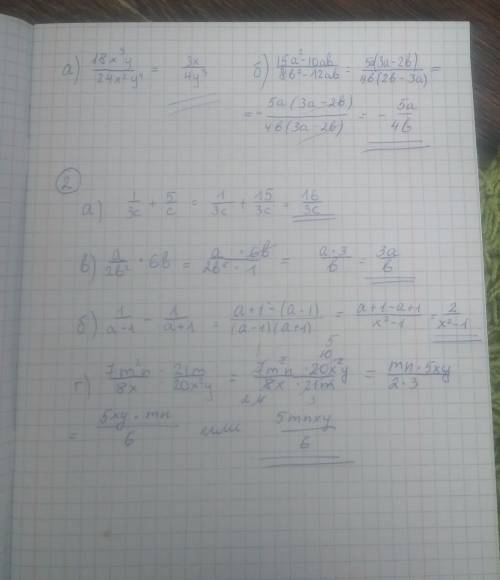 а) 18x³y / 24x²y⁴ = 3x / 4y³ б) 15a² - 10ab / 8b² - 12ab = 5a(3a - 2b) / 4b(2b - 3a) =
= - 5a(3a - 2b) / 4b(3a - 2b) = - 5a / 4b
2
а) 1/3c + 5/c = 1/3c + 15/3c = 16/3c
в) a/2b² · 6b = a · 6b / 2b² · 1 = a · 3 / b = 3a / b
б) 1/a-1 - 1/a+1 = a+1-(a-1) / (a-1)(a+1) = a+1-a+1 / x²-1 = 2 / x²-1
г) 7m²n / 8x : 21m / 20x²y = 7m²n · 20x²y / 8x · 21m = mn · 5xy / 2 · 3
= 5xy · mn / 6 или 5mnxy / 6